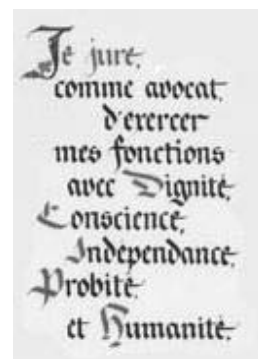 Je jure,
comme avocat,
d'exercer
mes fonctions
avec Dignité,
Conscience,
Indépendance,
Probité,
et Humanité.